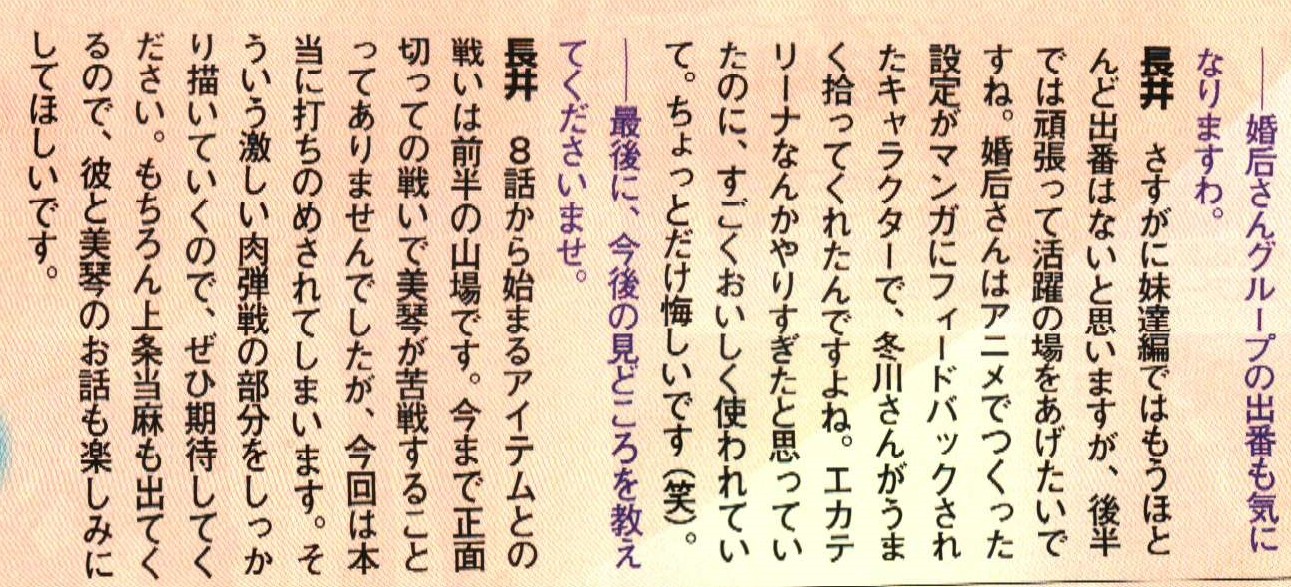 ――婚后さんグループの出番も気に
なりますわ。
長井　さすがに妹達編ではもうほと
んど出番はないと思いますが、後半
では頑張って活躍の場をあげたいで
すね。婚后さんはアニメでつくった
設定がマンガにフィードバックされ
たキャラクターで、冬川さんがうま
く拾ってくれたんですよね。エカテ
リーナなんかやりすぎたと思ってい
たのに、すごくおいしく使われてい
て。ちょっとだけ悔しいです（笑）。
――最後に、今後の見どころを教え
てくださいませ。
長井　8話から始まるアイテムとの
戦いは前半の山場です。今まで正面
切っての戦いで美琴が苦戦すること
ってありませんでしたが、今回は本
当に打ちのめされてしまいます。そ
ういう激しい肉弾戦の部分をしっか
り描いていくので、ぜひ期待してく
ださい。もちろん上条当麻も出てく
るので、彼と美琴のお話も楽しみに
してほしいです。